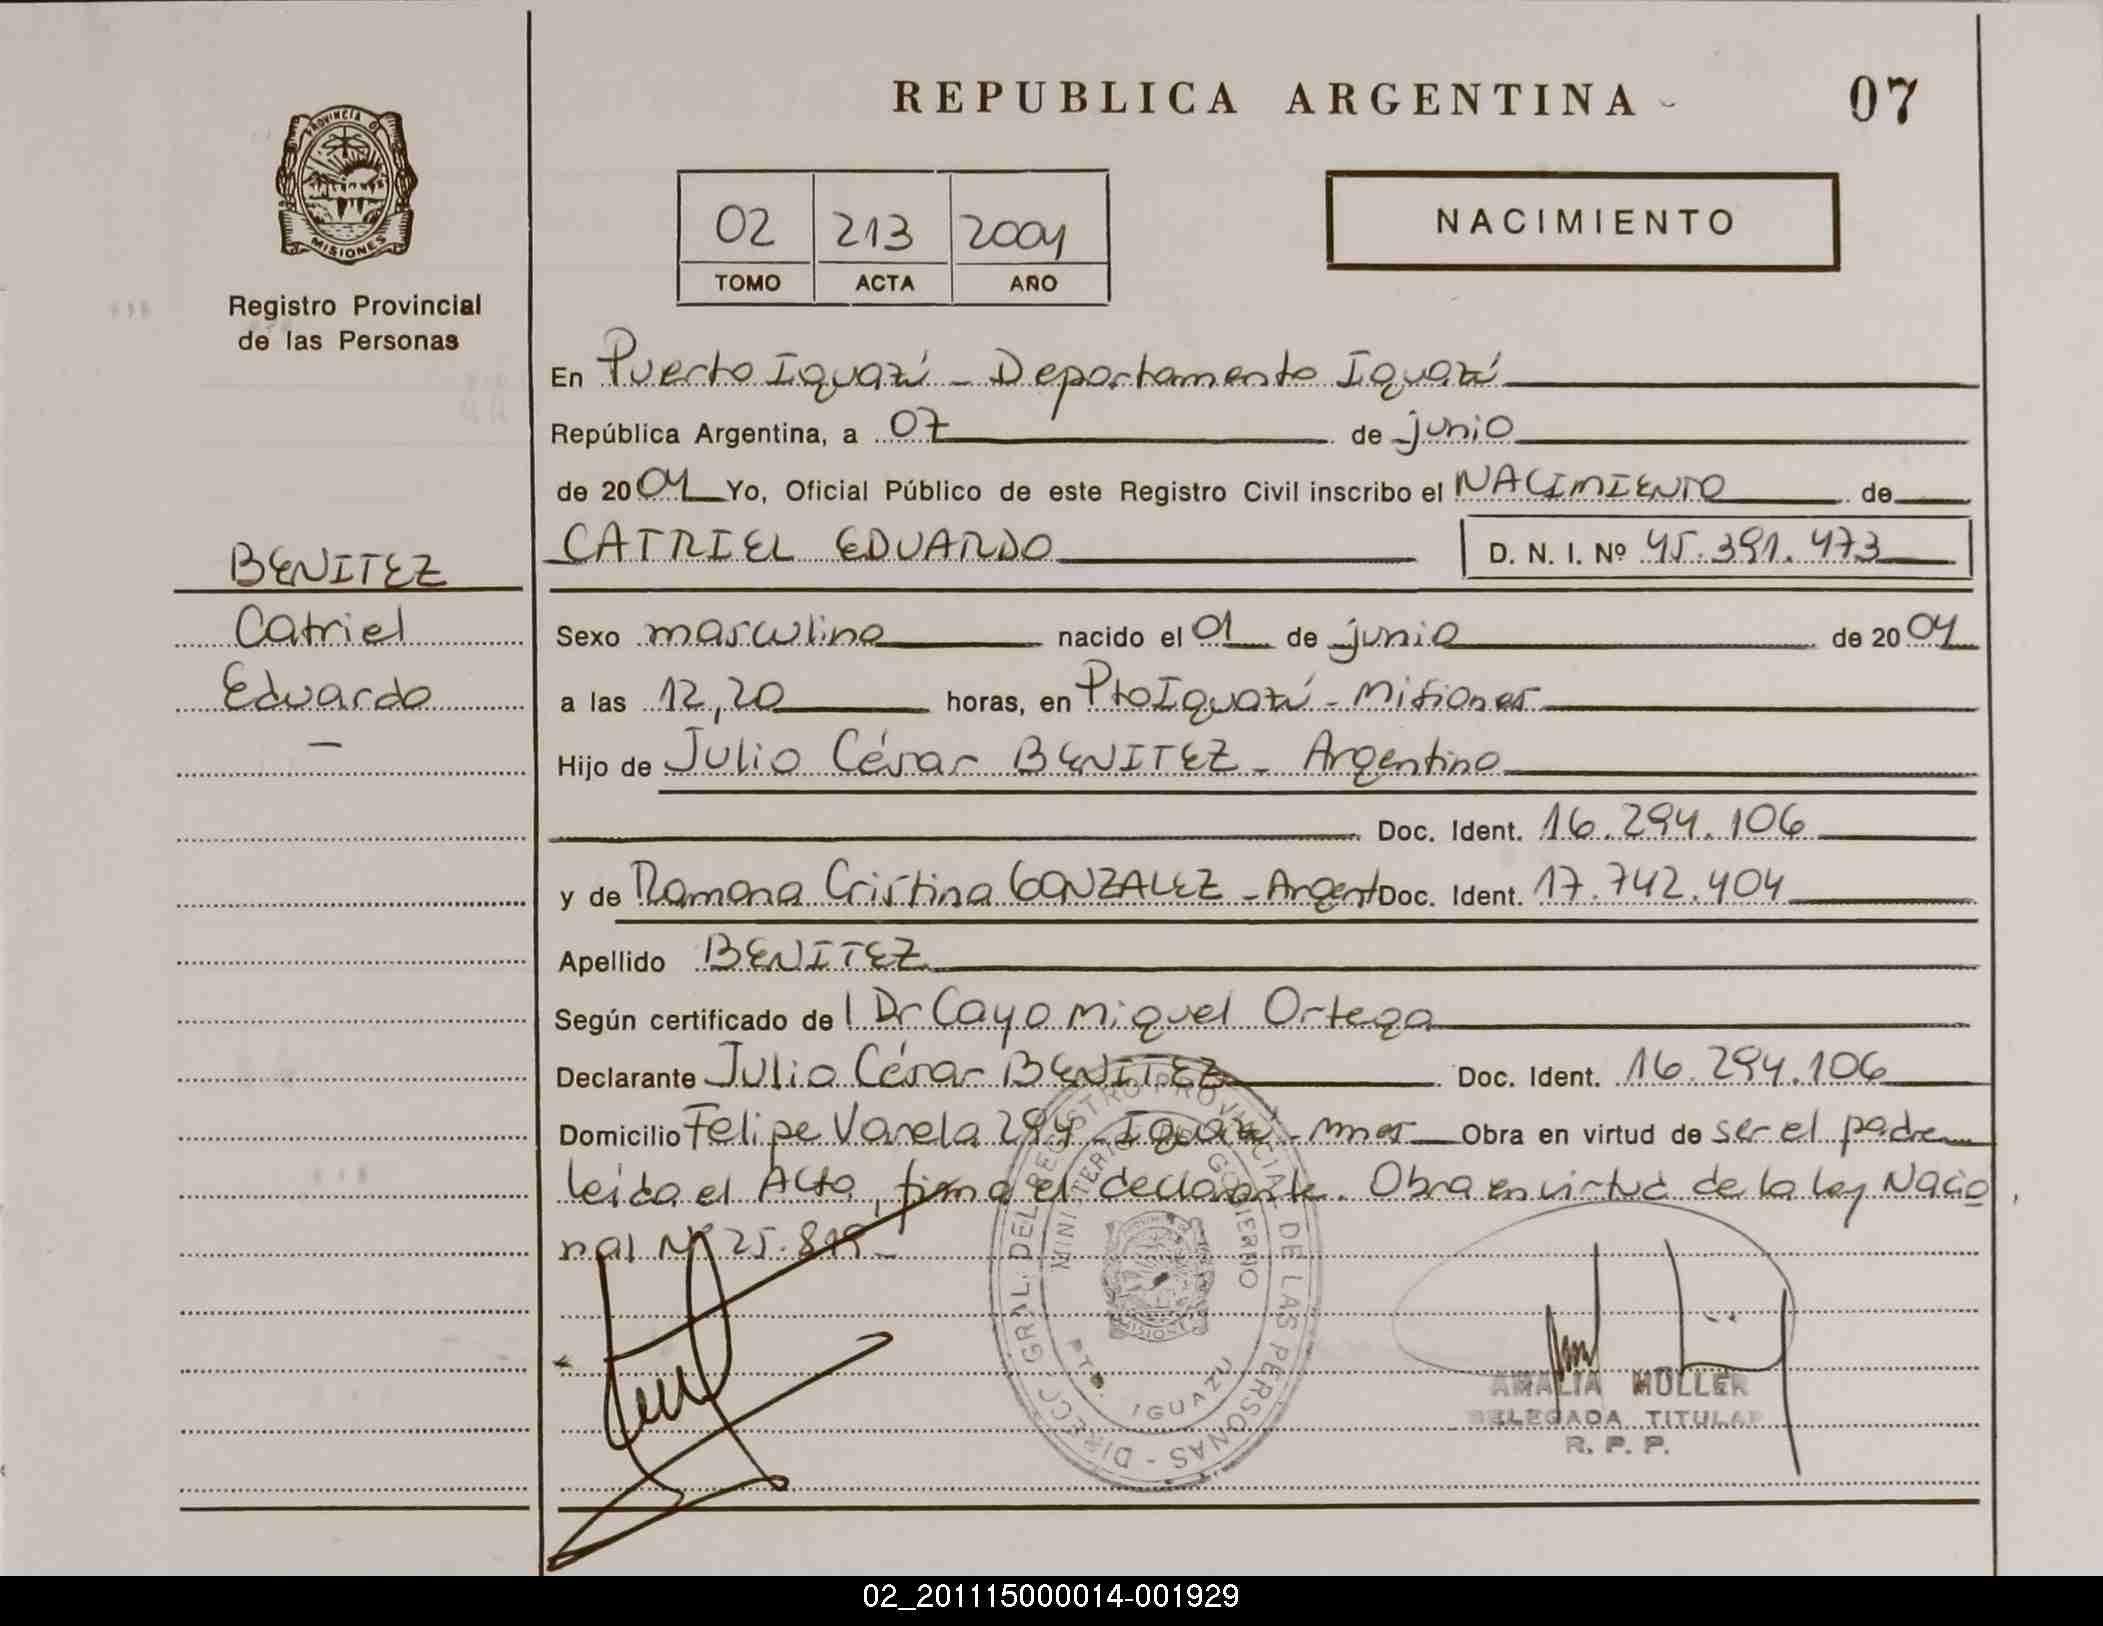 REPUBLICA ARGENTINA
07
PROVINCIA D
MISIONES
Registro Provincial
de las Personas
02 213 2004
TOMO ACTA AÑO
NACIMIENTO
En Puerto Iguazú - Departamento Iguazú
República Argentina, a 07 de junio
de 2004 Yo, Oficial Público de este Registro Civil inscribo el NACIMIENTO de
CATRIEL EDUARDO D. N. I. Nº 45.391.473
BENITEZ
Catriel
Eduardo
Sexo masculino nacido el 01 de junio de 2004
a las 12,20 horas, en Pto Iguazú - Misiones
Hijo de Julio César BENITEZ - Argentino
Doc. Ident. 16.294.106
y de Ramona Cristina GONZALEZ - Argent Doc. Ident. 17.742.404
Apellido BENITEZ
Según certificado de l Dr Cayo Miguel Ortega
Declarante Julio César BENITEZ Doc. Ident. 16.294.106
Domicilio Felipe Varela 294 - Iguazú - Mnes Obra en virtud de ser el padre
leída el Acta, firma el declarante. Obra en virtud de la ley Nacio
nal Nº 25.819-
DIRECC. GRAL. DEL REGISTRO PROVINCIAL DE LAS PERSONAS -
MINISTERIO GOBIERNO
MISIONES
PTO. IGUAZU
AMALIA MULLER
DELEGADA TITULAR
R. P. P.
02_201115000014-001929